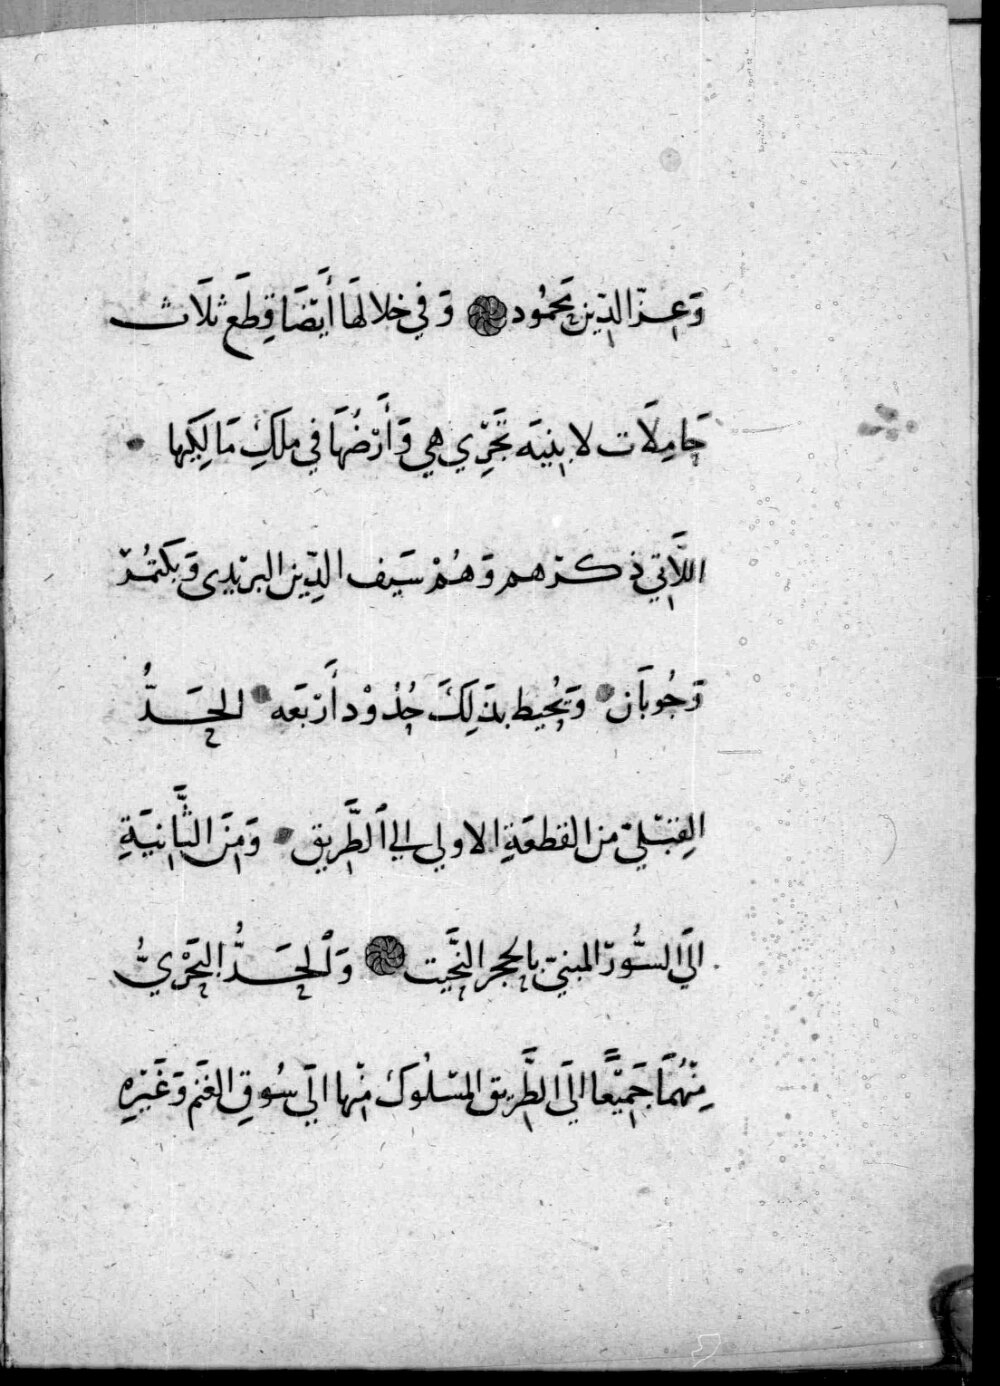 وَعِزّ الدِّين مَحمُود وَفي خلالهَا أَيّضَا قِطَع ثلَاث
حَامِلَات لابنيَه تَجّرِي هي وَأَرّضُهَا في ملكِ مَالِكِها
اللَّاتي ذكرّهم وَهُمْ سَيف الدِّين البرّيدى وَبَكتمُرّ
وَجُوبَان وَيُحيط بذَلِكَ حُدُوْد أَرّبَعَه الحَدُّ
القِبّليّ من القطعَةِ الاولي الي الطَّرِيق وَمِنَ الثَّانِيَةِ
الَي السُّورّ المبنيّ بالحجر النَّحِيت وَالحَدُّ البَحْرِيُّ
مِنّهُمَا جَمِيّعًا الَي الطَّرِيق المسّلُوك مِنّها الَي سُوقِ الغَنَم وَغَيّرِهِ